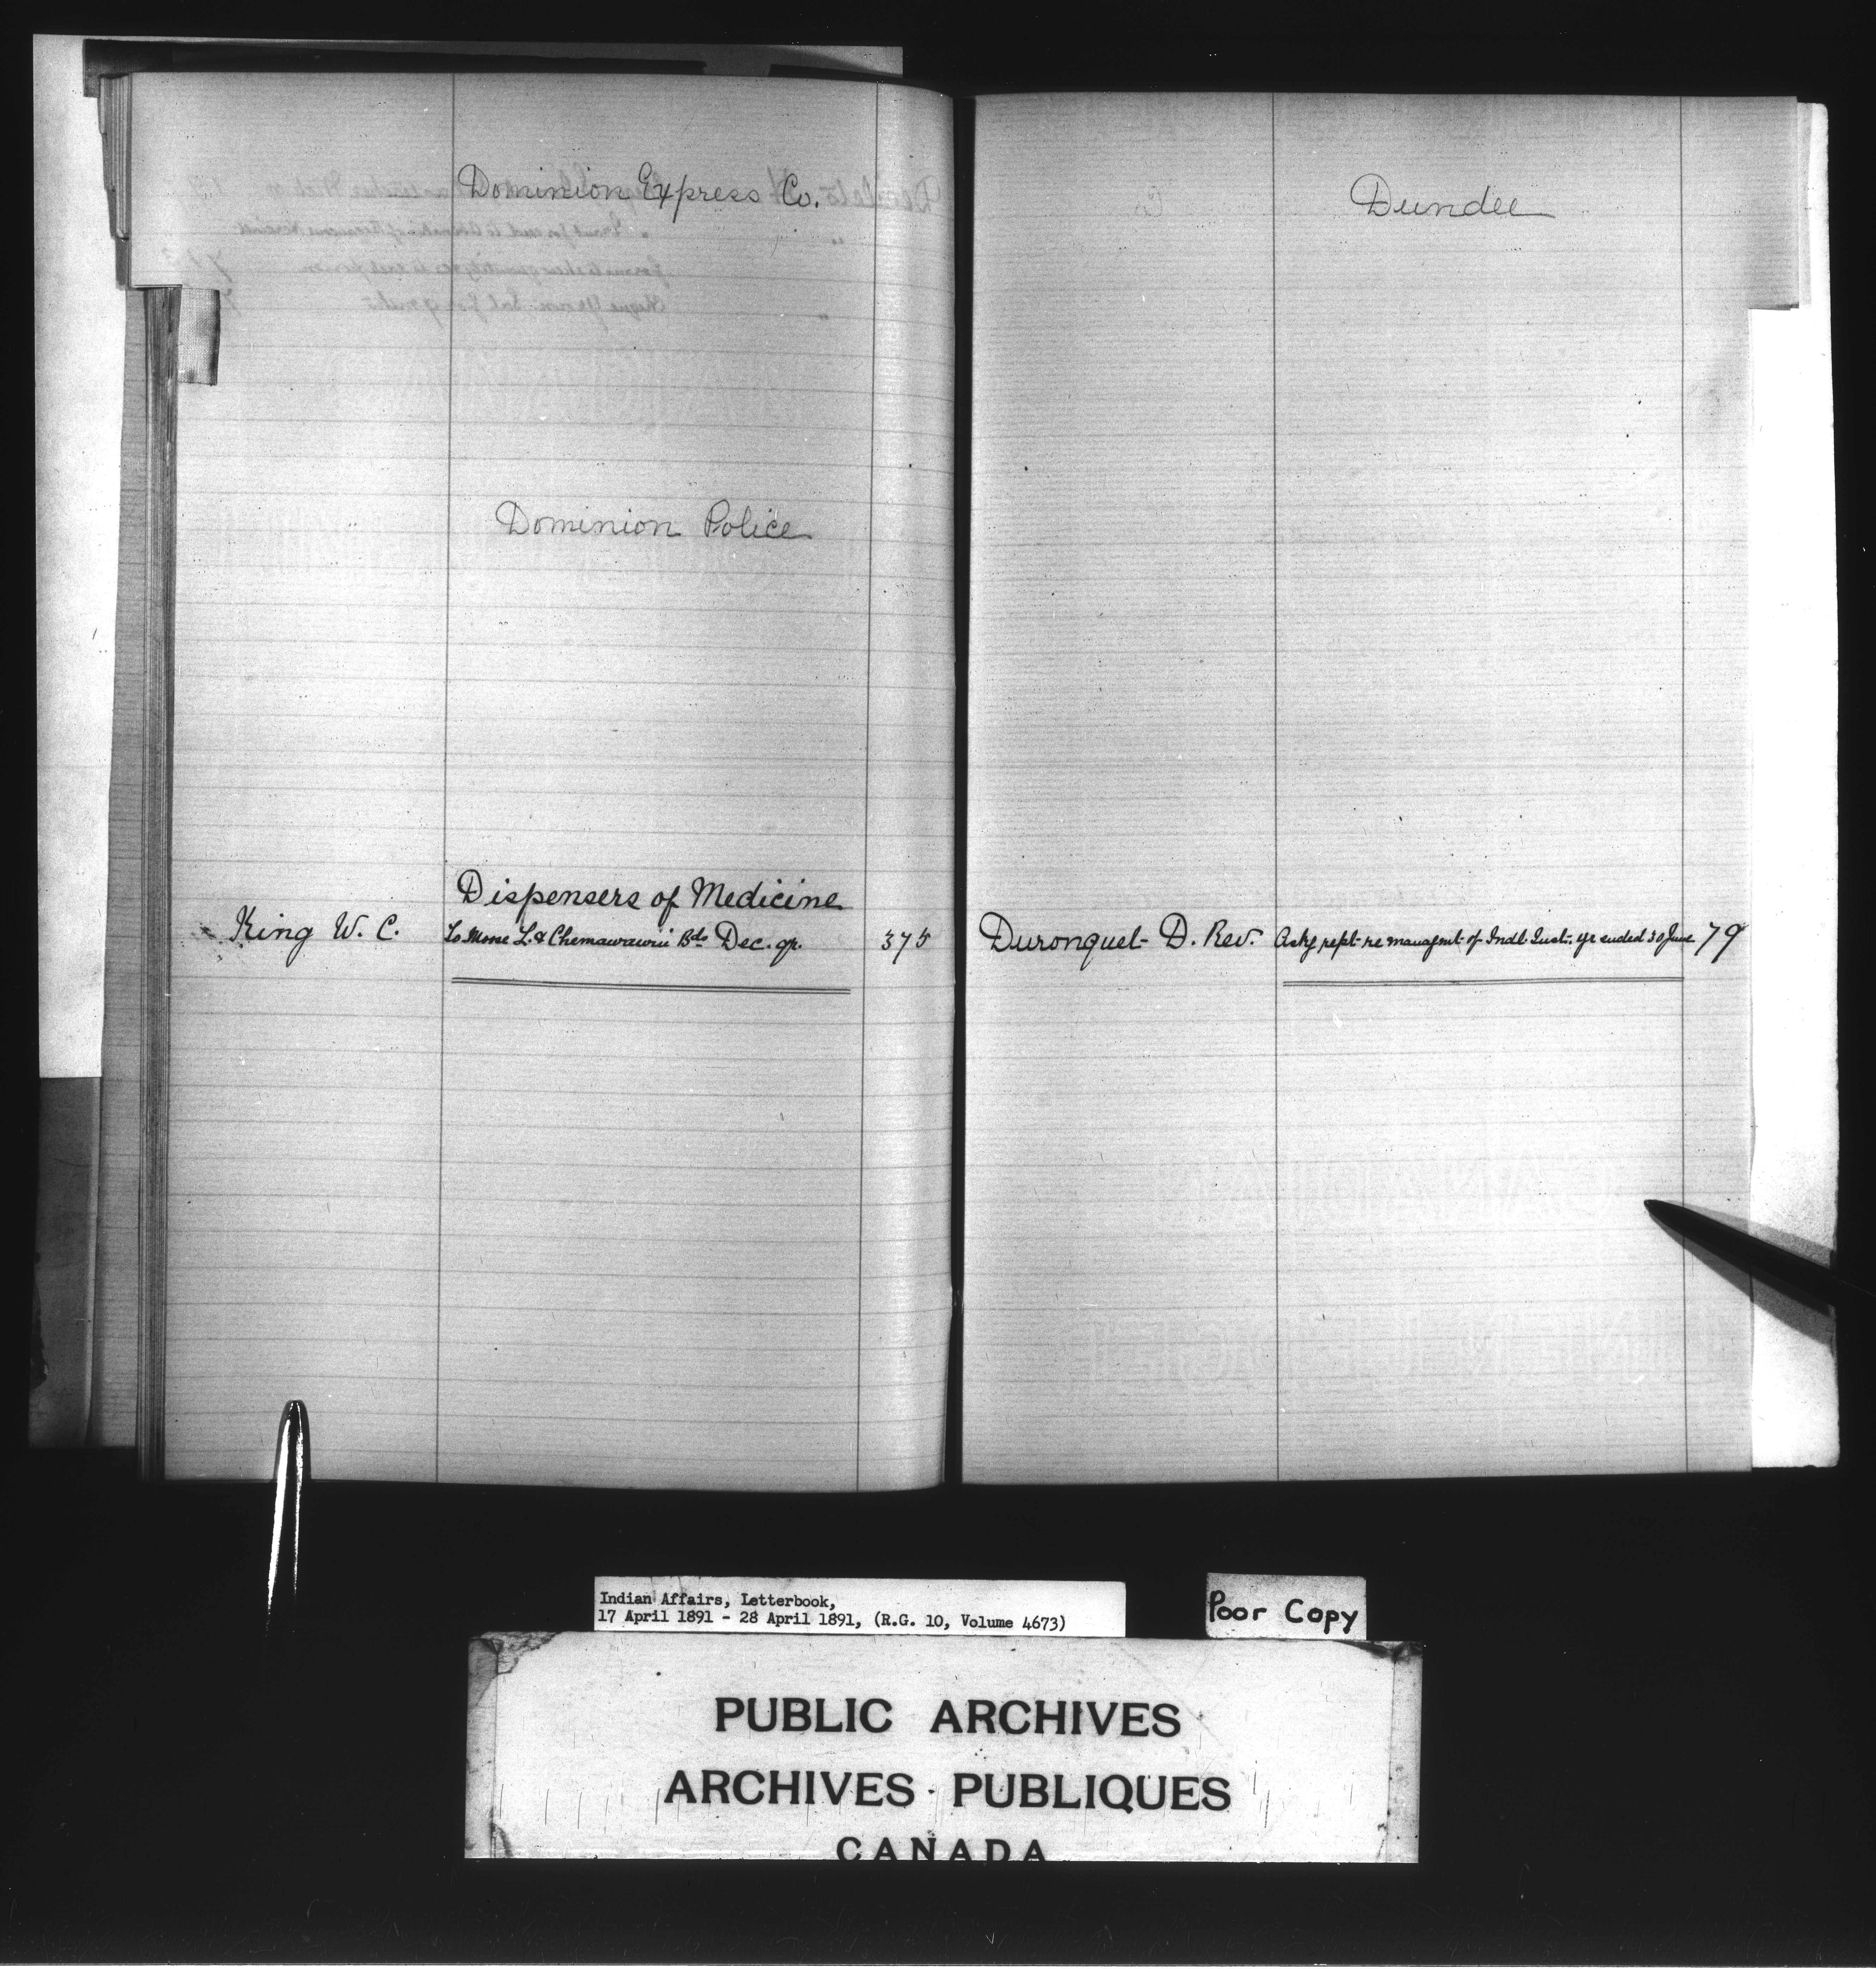 Dominion Express Co.
Dominion Police
Dispensers of Medicine
King W. C. To Moose L. & Chemawawin Bds Dec. qr. 375
Dundee
Duronquet D. Rev. Ask'g rept re managmt of Indl Inst. yr ended 30 June 79
Indian Affairs, Letterbook,
17 April 1891 - 28 April 1891, (R.G. 10, Volume 4673)
Poor Copy
PUBLIC ARCHIVES
ARCHIVES PUBLIQUES
CANADA